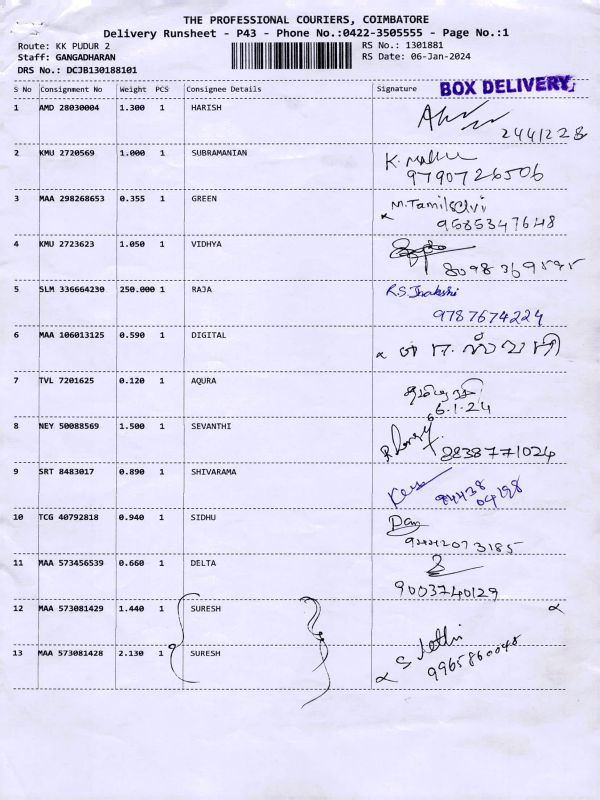 THE PROFESSIONAL COURIERS, COIMBATORE
Delivery Runsheet - P43 - Phone No.:0422-3505555 - Page No.:1
Route: KK PUDUR 2 RS No.: 1301881
Staff: GANGADHARAN RS Date: 06-Jan-2024
DRS No.: DCJB130188101
BOX DELIVERY
S No Consignment No Weight PCS Consignee Details Signature
1 AMD 28030004 1.300 1 HARISH
2441228
2 KMU 2720569 1.000 1 SUBRAMANIAN K.
9790726506
3 MAA 298268653 0.355 1 GREEN M.Tamilselvi
9585347648
4 KMU 2723623 1.050 1 VIDHYA
8098369595
5 SLM 336664230 250.000 1 RAJA R.S.
9787674224
6 MAA 106013125 0.590 1 DIGITAL
7 TVL 7201625 0.120 1 AQURA
6.1.24
8 NEY 50088569 1.500 1 SEVANTHI
8838771024
9 SRT 8483017 0.890 1 SHIVARAMA
94438
04198
10 TCG 40792818 0.940 1 SIDHU
9442073185
11 MAA 573456539 0.660 1 DELTA
9003740129
12 MAA 573081429 1.440 1 SURESH
13 MAA 573081428 2.130 1 SURESH S Jothi
9965860048